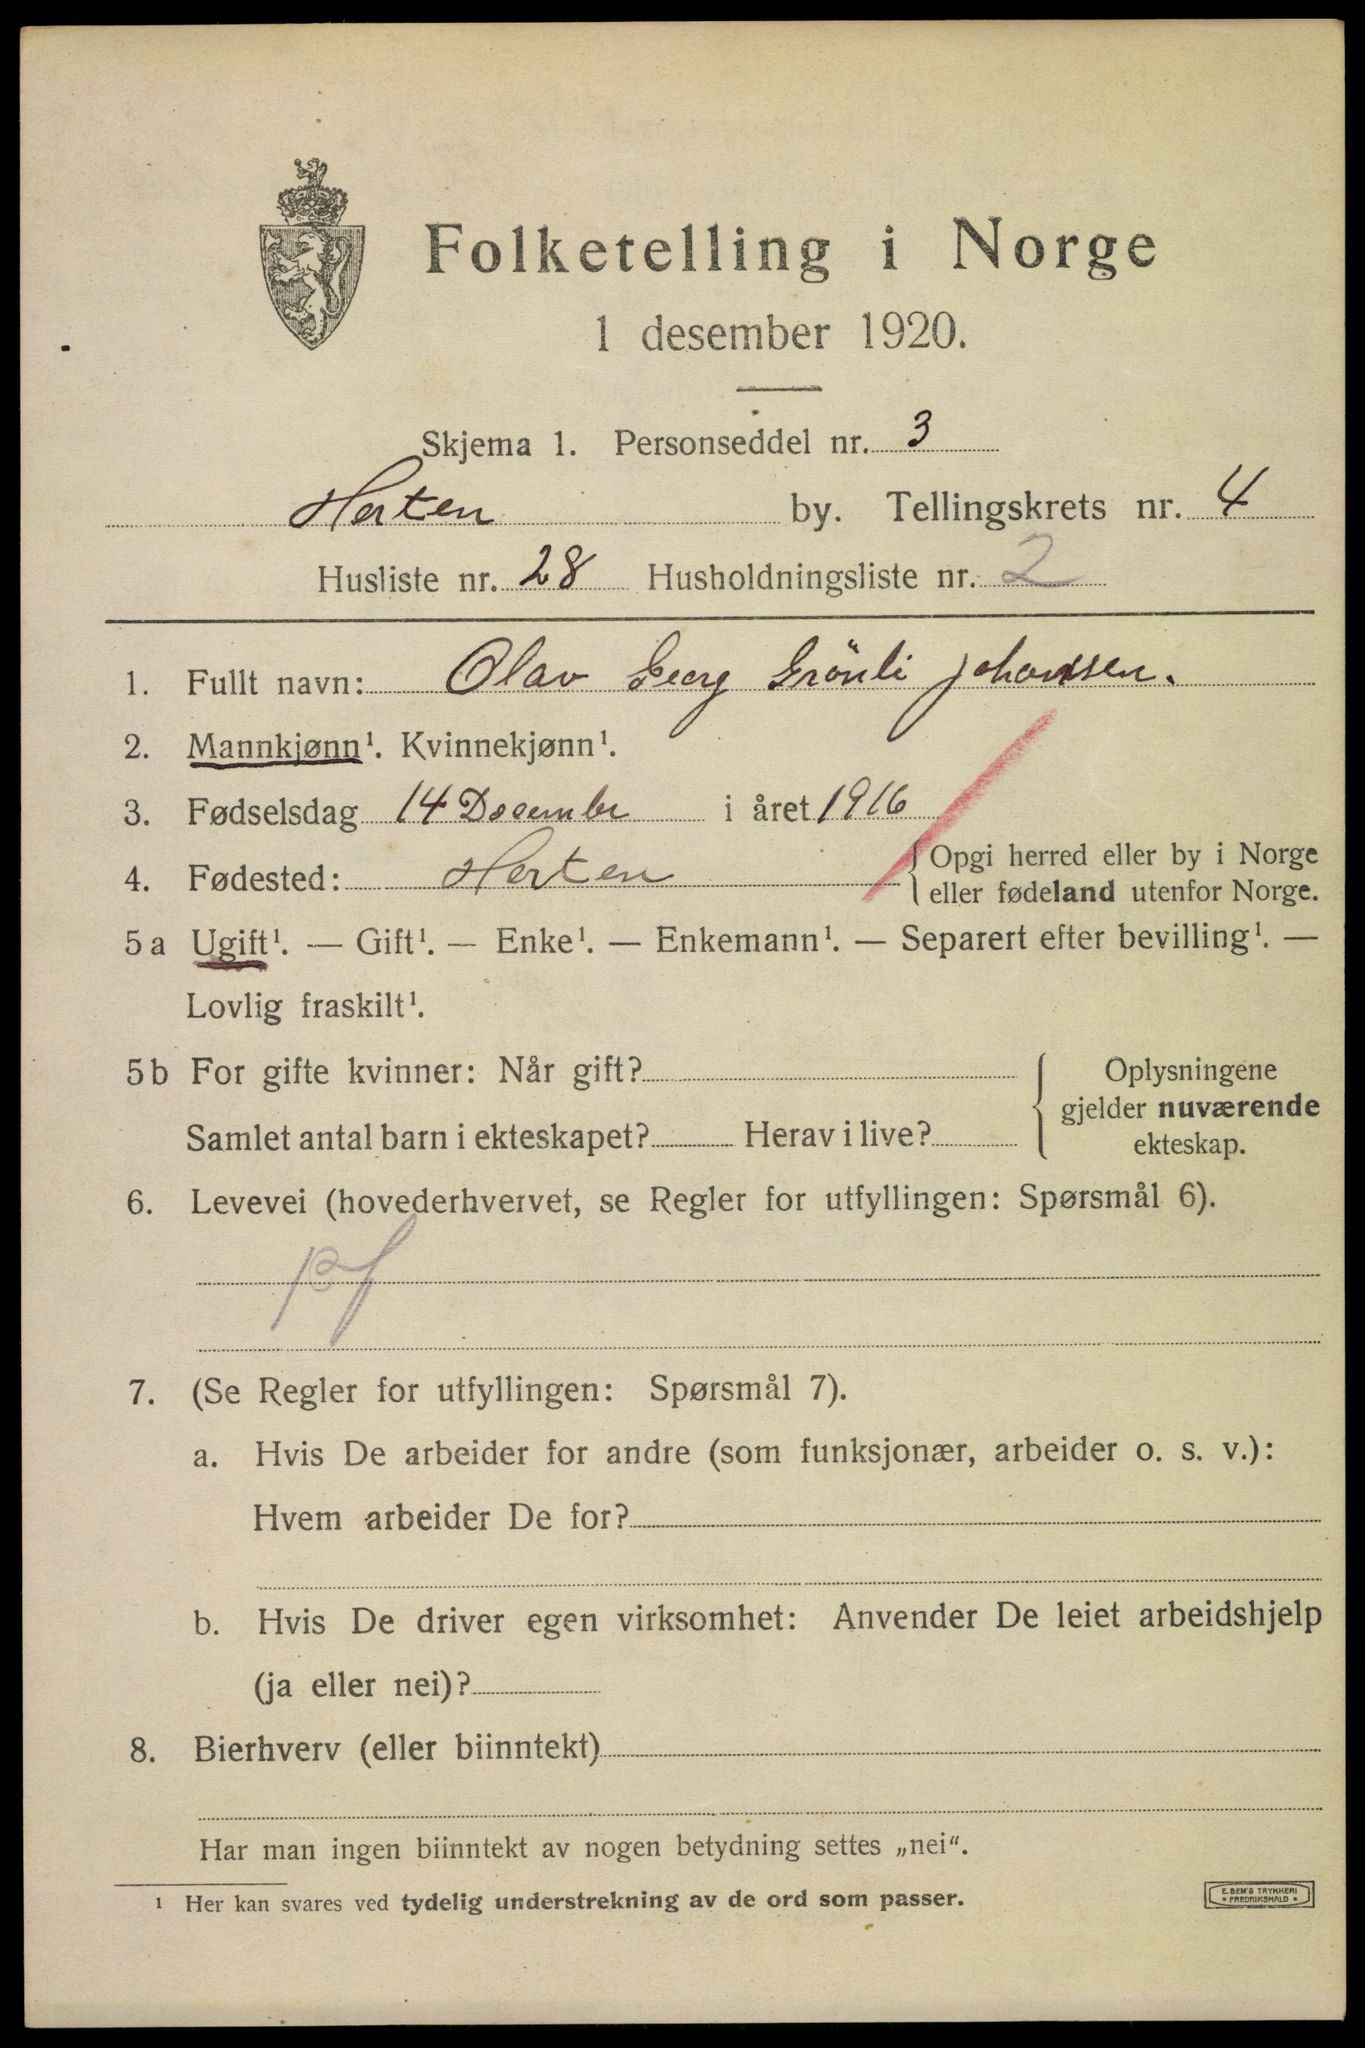 Folketelling i Norge
1 desember 1920.
Skjema 1. Personseddel nr. 3
Horten by. Tellingskrets nr. 4
Husliste nr. 28 Husholdningsliste nr. 2
1. Fullt navn: Olav Georg Grönli Johansen.
2. Mannkjønn¹. Kvinnekjønn¹.
3. Fødselsdag 14 December i året 1916
4. Fødested: Horten {Opgi herred eller by i Norge
eller fødeland utenfor Norge.
5 a Ugift¹. — Gift¹. — Enke¹. — Enkemann¹. — Separert efter bevilling¹. —
Lovlig fraskilt¹.
5 b For gifte kvinner: Når gift? { Oplysningene
gjelder nuværende
Samlet antal barn i ekteskapet? Herav i live? ekteskap.
6. Levevei (hovederhvervet, se Regler for utfyllingen: Spørsmål 6).
pf
7. (Se Regler for utfyllingen: Spørsmål 7).
a. Hvis De arbeider for andre (som funksjonær, arbeider o. s. v.):
Hvem arbeider De for?
b. Hvis De driver egen virksomhet: Anvender De leiet arbeidshjelp
(ja eller nei)?
8. Bierhverv (eller biinntekt)
Har man ingen biinntekt av nogen betydning settes „nei“.
¹ Her kan svares ved tydelig understrekning av de ord som passer.
E. SEM'S TRYKKERI
• FREDRIKSHALD •